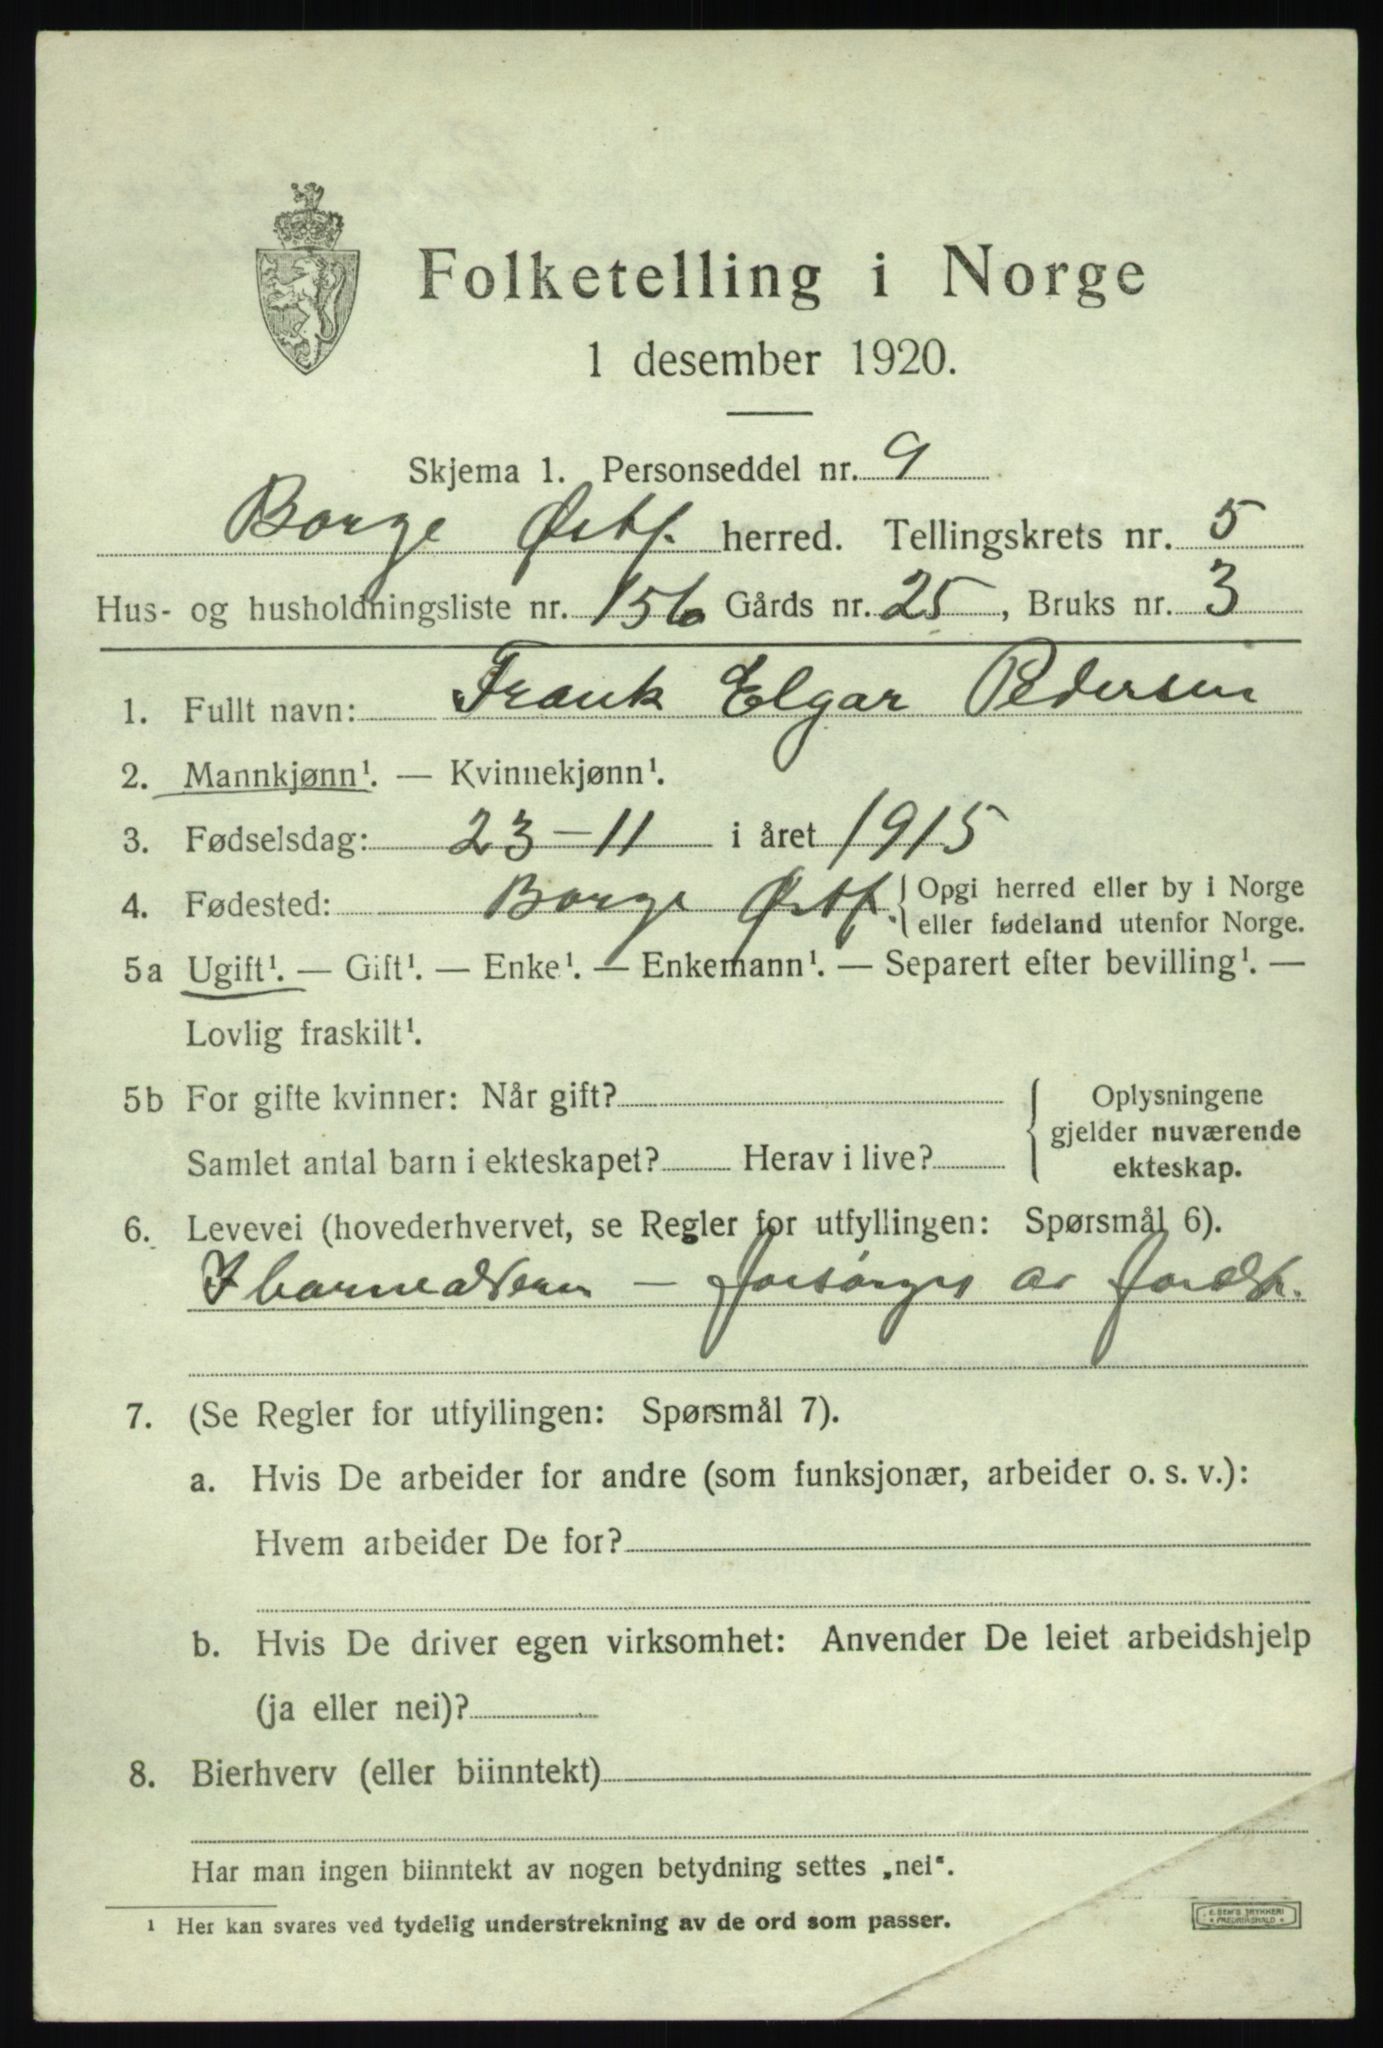 Folketelling i Norge
1 desember 1920.
Skjema 1. Personseddel nr. 9
Borge Østf. herred. Tellingskrets nr. 5
Hus- og husholdningsliste nr. 156 Gårds nr. 25, Bruks nr. 3
1. Fullt navn: Frank Elgar Pedersen
2. Mannkjønn¹. — Kvinnekjønn¹.
3. Fødselsdag: 23-11 i året 1915
4. Fødested: Borge Østf. Opgi herred eller by i Norge
eller fødeland utenfor Norge.
5a Ugift¹. — Gift¹. — Enke¹. — Enkemann¹. — Separert efter bevilling¹. —
Lovlig fraskilt¹.
5b For gifte kvinner: Når gift?
Samlet antal barn i ekteskapet? Herav i live?
Oplysningene
gjelder nuværende
ekteskap.
6. Levevei (hovederhvervet, se Regler for utfyllingen: Spørsmål 6).
I barnealderen — forsørges av foreldr.
7. (Se Regler for utfyllingen: Spørsmål 7).
a. Hvis De arbeider for andre (som funksjonær, arbeider o. s. v.):
Hvem arbeider De for?
b. Hvis De driver egen virksomhet: Anvender De leiet arbeidshjelp
(ja eller nei)?
8. Bierhverv (eller biinntekt)
Har man ingen biinntekt av nogen betydning settes „nei“.
¹ Her kan svares ved tydelig understrekning av de ord som passer.
E. SEM'S TRYKKERI
FREDRIKSHALD